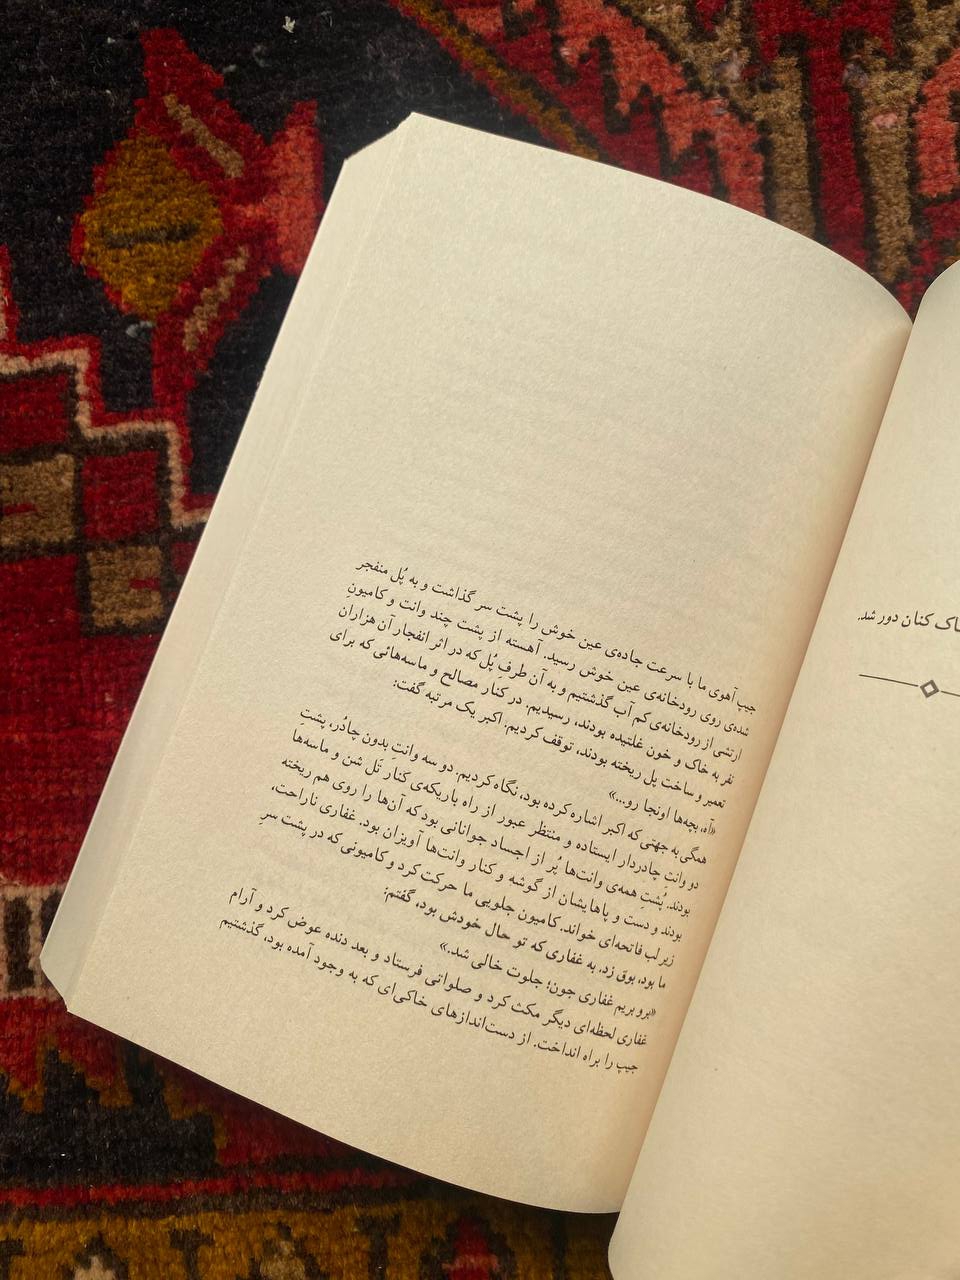 جیپ آهوی ما با سرعت جاده‌ی عین خوش را پشت سر گذاشت و به پُل منفجر
شده‌ی روی رودخانه‌ی عین خوش رسید. آهسته از پشت چند وانت و کامیونِ
ارتشی از رودخانه‌ی کم آب گذشتیم و به آن طرفِ پُل که در اثر انفجار آن هزاران
نفر به خاک و خون غلتیده بودند، رسیدیم. در کنار مصالح و ماسه‌هائی که برای
تعمیر و ساخت پل ریخته بودند، توقف کردیم. اکبر یک مرتبه گفت:
«آه، بچه‌ها اونجا رو...»
همگی به جهتی که اکبر اشاره کرده بود، نگاه کردیم. دو سه وانتِ بدون چادُر، پشتِ
دو وانتِ چادردار ایستاده و منتظر عبور از راه باریکه‌ی کنار تَل شن و ماسه‌ها
بودند. پُشتِ همه‌ی وانت‌ها پُر از اجساد جوانانی بود که آن‌ها را روی هم ریخته
بودند و دست و پاهایشان از گوشه و کنار وانت‌ها آویزان بود. غفاری ناراحت،
زیر لب فاتحه‌ای خواند. کامیون جلویی ما حرکت کرد و کامیونی که در پشت سرِ
ما بود، بوق زد. به غفاری که تو حال خودش بود، گفتم:
«برو بریم غفاری جون؛ جلوت خالی شد.»
غفاری لحظه‌ای دیگر مکث کرد و صلواتی فرستاد و بعد دنده عوض کرد و آرام
جیپ را براه انداخت. از دست‌اندازهای خاکی‌ای که به وجود آمده بود، گذشتیم
کنان دور شد.